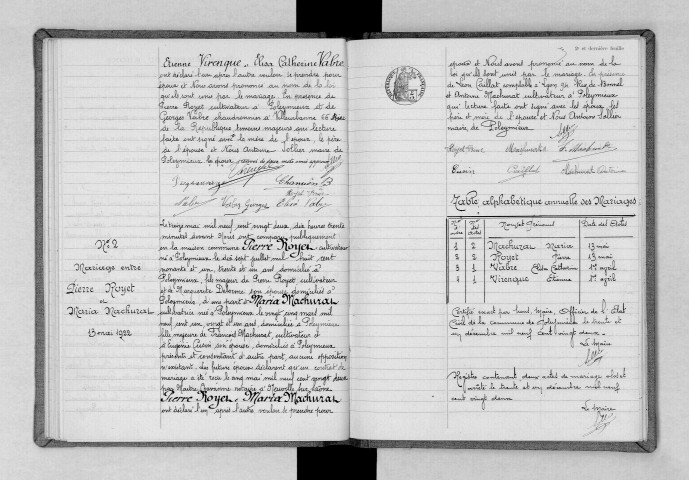 Etienne Virenque et Elisa Catherine Vabre
ont déclaré l'un après l'autre vouloir se prendre pour
époux et Nous avons prononcé au nom de la loi
qu'ils sont unis par le mariage. En présence de
Pierre Royet cultivateur à Poleymieux et de
Georges Vabre chaudronnier à Villeurbanne 66 Rue
de la République, témoins majeurs qui lecture
faite ont signé avec la mère de l'époux, le père
de l'épouse et Nous Antoine Sollier maire de
Poleymieux
Virenque
Vabre Georges
N° 2
Mariage entre
Pierre Royet
et
Maria Machurat
13 mai 1922
Le treize mai mil neuf cent vingt deux, dix heures trente
minutes devant Nous ont comparu publiquement
en la maison commune Pierre Royet cultivateur
né à Poleymieux le dix sept juillet mil huit cent
nonante et un trente et un ans domicilié à
Poleymieux, fils majeur de Pierre Royet cultivateur
et de Marguerite Delorme son épouse domiciliés à
Poleymieux, d'une part et Maria Machurat
cultivatrice née à Poleymieux le vingt cinq mars mil
neuf cent un vingt et un ans, domiciliée à Poleymieux
fille majeure de François Machurat, cultivateur et
d'Eugénie Cusin son épouse, domiciliés à Poleymieux
présents et consentant d'autre part, aucune opposition
n'existant. Les futurs époux déclarent qu'un contrat de
mariage a été reçu le mai mil neuf cent vingt deux
par Maître notaire à Neuville sur Saône
Pierre Royet et Maria Machurat
ont déclaré l'un après l'autre vouloir se prendre pour
et dernière feuille
époux et Nous avons prononcé au nom de la
loi qu'ils sont unis par le mariage. En présence
de Léon Caillat comptable à Lyon Rue de Bonnel
et Antoine Machurat cultivateur à Poleymieux
qui lecture faite ont signé avec les époux, les
père et mère de l'épouse et Nous Antoine Sollier
maire, de Poleymieux
Royet Pierre Machurat
Cusin Caillat Machurat Antoine
Table alphabétique annuelle des Mariages
Nos Nos Noms et Prénoms Date des Actes
1 2 Machurat Maria 13 mai
2 2 Royet Pierre 13 mai
3 1 Vabre Elisa Catherine 17 avril
4 1 Virenque Etienne 17 avril
Certifié exact par Nous, Maire, Officier de l'Etat
Civil de la commune de Poleymieux le trente et
un décembre mil neuf cent vingt deux
Le Maire
Registre contenant deux actes de mariage clos et
arrêté le trente et un décembre mil neuf
cent vingt deux
Le Maire